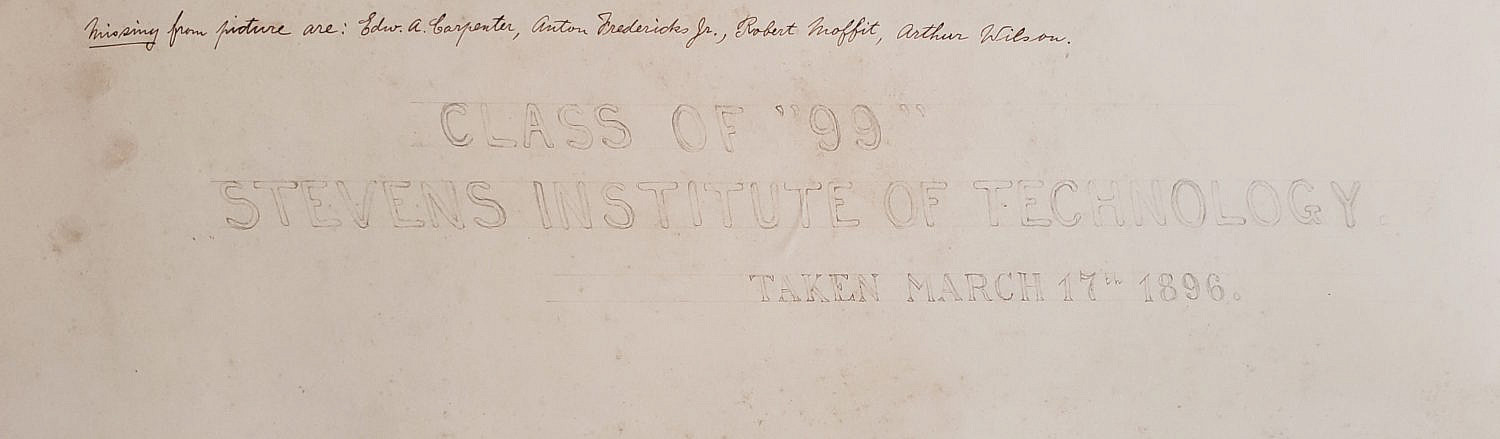 Missing from picture are: Edw. A. Carpenter, Anton Fredericks Jr., Robert Moffit, Arthur Wilson.
CLASS OF "99"
STEVENS INSTITUTE OF TECHNOLOGY.
TAKEN MARCH 17th 1896.